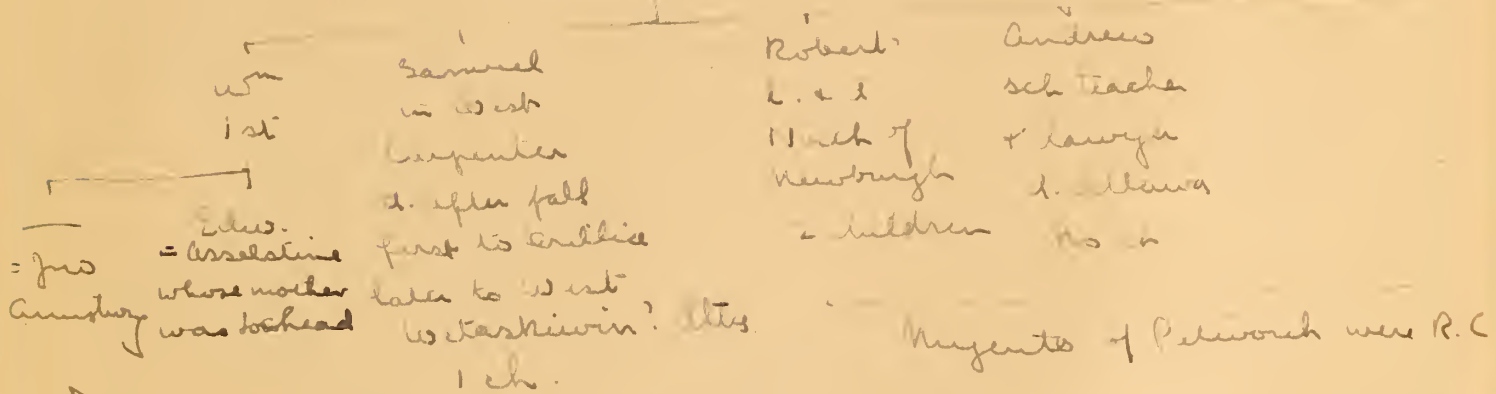 Wm
1st
Edw.
= Jno
= Asselstine
whose mother
was Lochead
Samuel
in West
Carpenter
d. after fall
first to
later to West
Wetaskiwin?
1 ch.
Robert
North of
Newburgh
children
Andrew
sch teacher
+ lawyer
Ottawa
No ch
Nugents of Petworth were R.C